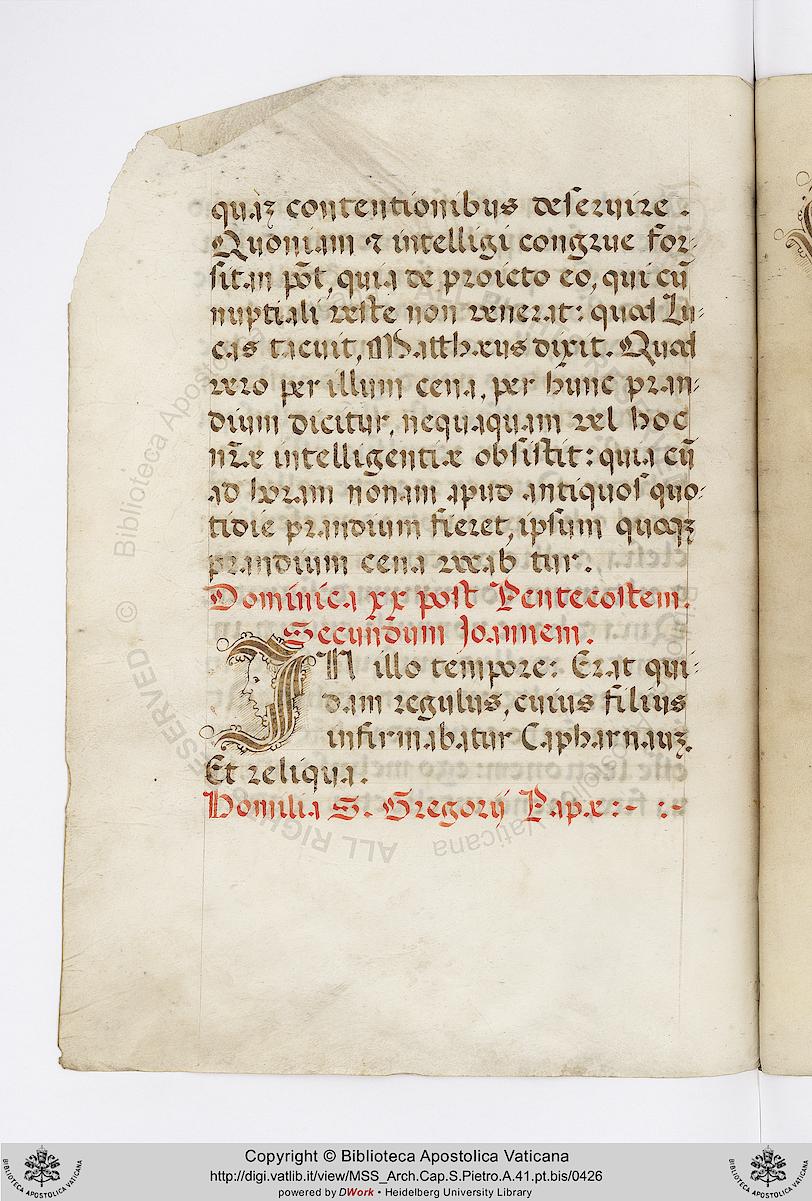 quàꝫ contentionibus deseruire.
Quoniam ⁊ intelligi congrue for⸗
sitan põt, quia de proiecto eo, qui cũ
nuptiali veste non venerat: quod Lu⸗
cas tacuit, Matthæus dixit. Quod
vero per illum cena, per hunc pran⸗
dium dicitur, nequaquam vel hoc
nr̃æ intelligentiæ obsistit: quia cũ
ad horam nonam apud antiquos quo⸗
tidie prandium fieret, ipsum quoqꝫ
prandium cena vocab tur.
Dominica xx post Pentecostem.
Secundum Joannem.
IN illo tempore: Erat qui⸗
dam regulus, cuius filius
infirmabatur Capharnauꝫ.
Et reliqua.
Homilia S. Gregorij Papæ:~ :~
© Biblioteca Apostolica Vaticana
ALL RIGHTS RESERVED
Copyright © Biblioteca Apostolica Vaticana
http://digi.vatlib.it/view/MSS_Arch.Cap.S.Pietro.A.41.pt.bis/0426
powered by DWork • Heidelberg University Library
BIBLIOTECA APOSTOLICA VATICANA
BIBLIOTECA APOSTOLICA VATICANA